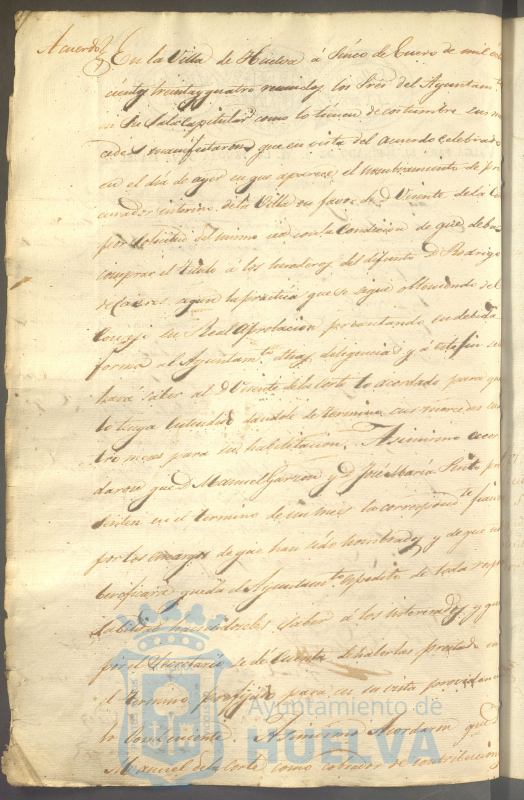 Acuerdo} En la Villa de Huelva á Sinco de Enero de mil ocho
cientos treinta y quatro reunidos los Sres del Ayuntamto
en su Sala Capitular como lo tienen de costumbre sus mr
cedes manifestaron que en vista del acuerdo celebrado
en el dia de ayer en que aparece el nombramiento de pro
curador interino de la Villa en favor de D. Vicente de la Co
por solicitud del mismo con la condicion de que deba
comprar el titulo á los herederos del difunto D Rodrigo
segun la practica que se sigue obteniendo del
Consejo su Real Aprobacion presentando en debida
forma al Ayuntamto diligencias y á este fin se
hará saber al D Vicente de la Corte lo acordado para que
lo tenga entendido dandole de termino sus mercedes cua
tro meses para su habilitacion. Asimismo acor
daron que D Manuel Garzon y D José María Pinto
en el termino de un mes la correspondte fianza
por los encargos de que han sido nombrados y de que no
verificara queda el Ayuntamto de toda resp
sabilidad haciendoseles saber á los interesados, y que
por el Secretario se dé cuenta de haberlas prestado en
el termino prefijado para en su vista
lo combeniente. Asimismo Acordaron que D
Manuel de la Corte como cobrador de contribuciones
Ayuntamiento de
HUELVA